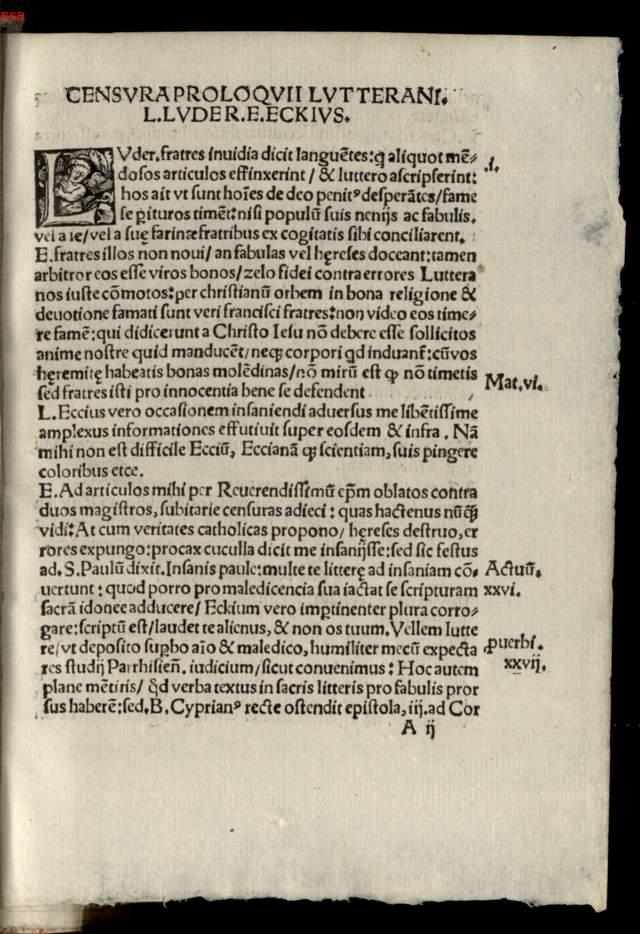 BSB
CENSVRA PROLOQVII LVTTERANI.
L. LVDER. E. ECKIVS.
LVder. fratres inuidia dicit languẽtes: q aliquot mẽ⸗
dosos articulos effinxerint / & luttero ascripserint:
hos ait vt sunt hoĩes de deo penitꝰ desperãtes / fame
se pituros timẽt: nisi populũ suis nenijs ac fabulis.
vel a se / vel a suę farinæ fratribus ex cogitatis sibi conciliarent.
E. fratres illos non noui / an fabulas vel hęreses doceant: tamen
arbitror eos esse viros bonos / zelo fidei contra errores Luttera
nos iuste cõmotos: per christianũ orbem in bona religione &
deuotione famati sunt veri francisci fratres: non video eos time⸗
re famẽ: qui didicerunt a Christo Iesu nõ debere esse sollicitos
anime nostre quid manducẽt / neqꝫ corpori qd induant: cũ vos
hęremitę habeatis bonas molẽdinas / nõ mirũ est ꝙ nõ timetis
sed fratres isti pro innocentia bene se defendent
L. Eccius vero occasionem insaniendi aduersus me libẽtissime
amplexus informationes effutiuit super eosdem & infra. Nã
mihi non est difficile Ecciũ, Eccianã qꝫ scientiam, suis pingere
coloribus etce.
E. Ad articulos mihi per Reuerendissimũ ep̃m oblatos contra
duos magistros, subitarie censuras adieci: quas hactenus nũꝗ̃
vidi: At cum veritates catholicas propono / hęreses destruo, er
rores expungo: procax cuculla dicit me insanijsse: sed sic festus
ad. S. Paulũ dixit. Insanis paule: multe te litterę ad insaniam cõ⸗
uertunt: quod porro pro maledicencia sua iactat se scripturam
sacrã idonee adducere / Eckium vero imptinenter plura corro⸗
gare: scriptũ est / laudet te alienus, & non os tuum. Vellem lutte
re / vt deposito supbo aĩo & maledico, humiliter mecũ expecta
res studij Parrhisieñ. iudicium / sicut conuenimus: Hoc autem
plane mẽtiris / qd verba textus in sacris litteris pro fabulis pror
sus haberẽ: sed. B. Cyprianꝰ recte ostendit epistola, iij. ad Cor
A ij
.i.
Mat. vi.
Actuũ.
xxvi.
puerbi.
xxvij.